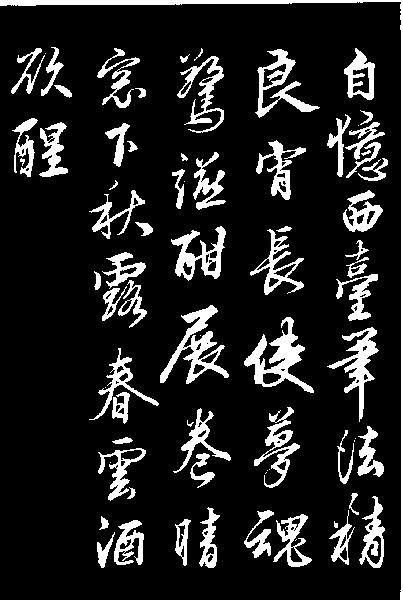 自憶西臺筆法精
良宵長使夢魂
驚酣展卷晴
窓下秋露春雲酒
欲醒